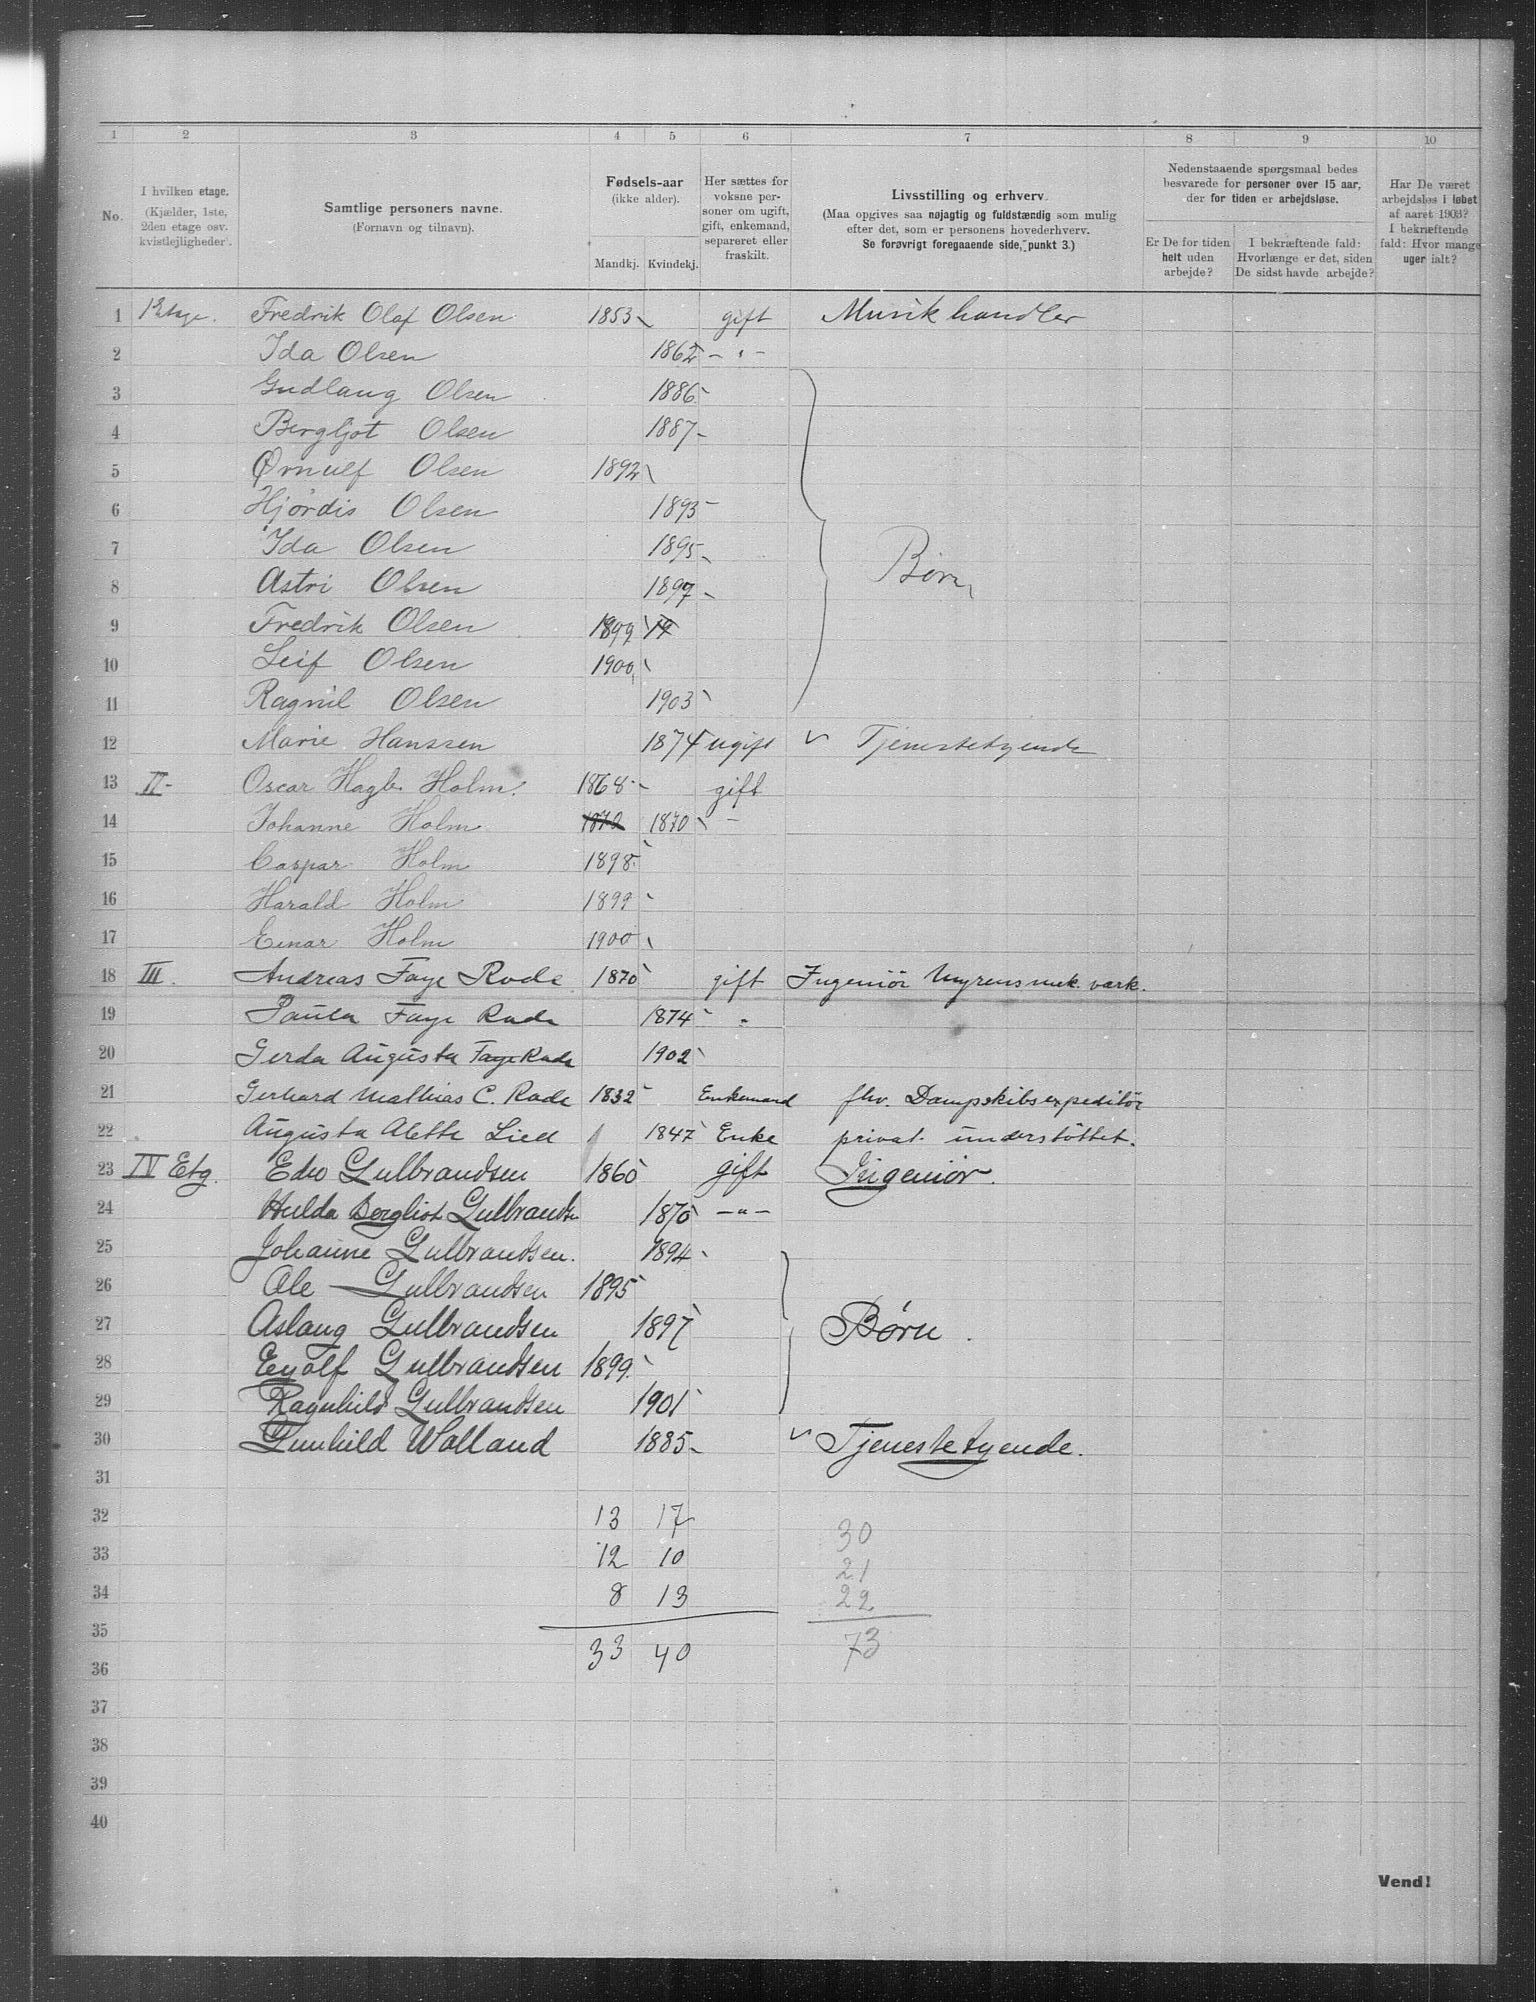 1 2 3 4 5 6 7 8 9 10
No.
I hvilken etage.
(Kjælder, 1ste,
2den etage osv.
kvistlejligheder).
Samtlige personers navne.
(Fornavn og tilnavn).
Fødsels-aar
(ikke alder).
Mandkj. Kvindekj.
Her sættes for
voksne per-
soner om ugift,
gift, enkemand,
separeret eller
fraskilt.
Livsstilling og erhverv.
(Maa opgives saa nøjagtig og fuldstændig som mulig
efter det, som er personens hovederhverv.
Se forøvrigt foregaaende side, punkt 3.)
Nedenstaaende spørgsmaal bedes
besvarede for personer over 15 aar,
der for tiden er arbejdsløse.
Er De for tiden
helt uden
arbejde?
I bekræftende fald:
Hvorlænge er det, siden
De sidst havde arbejde?
Har De været
arbejdsløs i løbet
af aaret 1903?
I bekræftende
fald: Hvor mange
uger ialt?
1 1 Etage. Fredrik Olaf Olsen 1853 gift Musikhandler
2 Ida Olsen 1862 - " -
3 Gudlaug Olsen 1886
4 Bergljot Olsen 1887
5 Ørnulf Olsen 1892
6 Hjørdis Olsen 1893
7 Ida Olsen 1895 Børn
8 Astri Olsen 1897
9 Fredrik Olsen 1899 19
10 Leif Olsen 1900
11 Ragnil Olsen 1903
12 Marie Hanssen 1874 ugift Tjenestetyende
13 II - Oscar Hagb. Holm. 1868 gift
14 Johanne Holm 1870 1870 -
15 Caspar Holm 1898
16 Harald Holm 1899
17 Einar Holm 1900
18 III. Andreas Faye Rode 1870 gift Ingeniør Myrens mek. værk.
19 Paula Faye Rode 1874 "
20 Gerda Augusta Faye Rode 1902
21 Gerhard Mathias C. Rode 1832 Enkemand fhv. Dampskibsexpeditør
22 Augusta Alette Lied 1847 Enke privat. understöttet.
23 IV Etg. Edv Gulbrandsen 1860 gift Ingeniør.
24 Hulda Bergliot Gulbrandsen 1870 - " -
25 Johanne Gulbrandsen. 1894
26 Ole Gulbrandsen 1895
27 Aslaug Gulbrandsen 1897 Børn.
28 Eyolf Gulbrandsen 1899.
29 Ragnhild Gulbrandsen 1901
30 Gunhild Walland 1885 Tjenestetyende.
31
32 13 17 30
33 12 10 21
34 8 13 22
35 33 40 73
36
37
38
39
40
Vend!